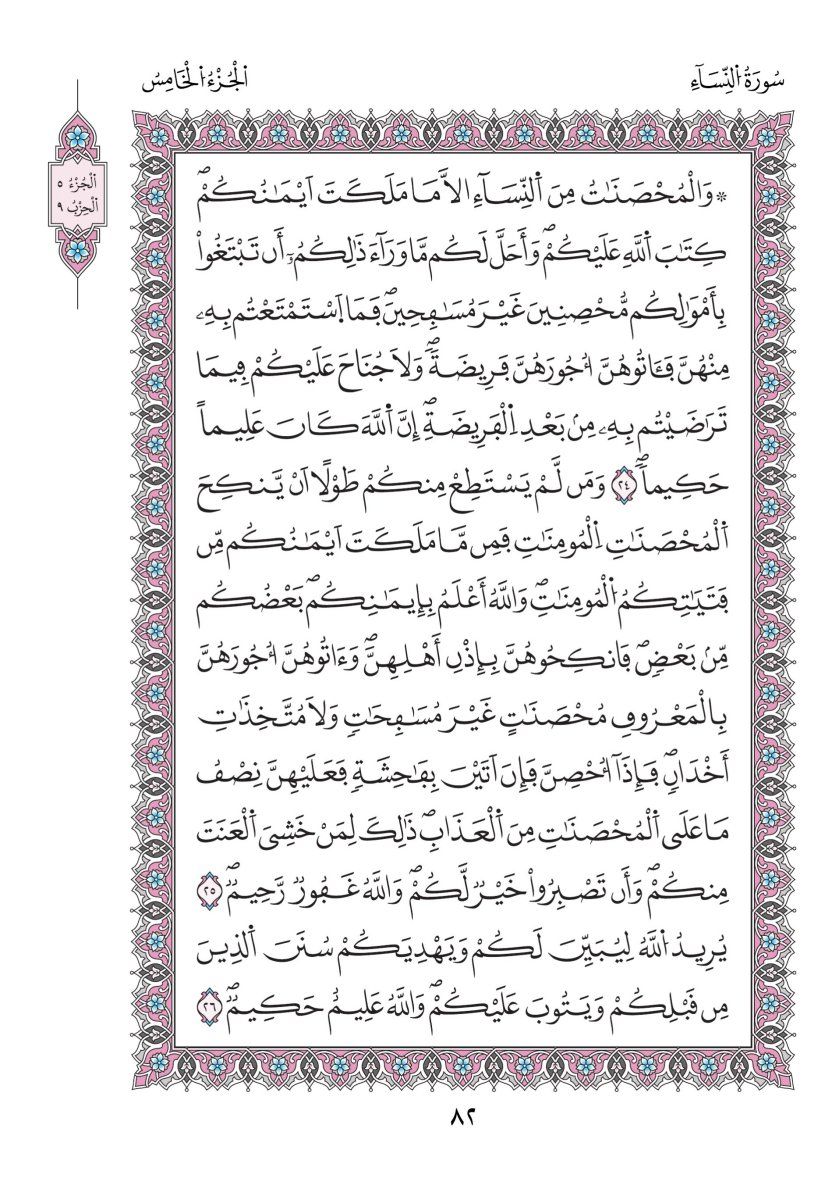 سُورَةُ اُ۬لنِّسَآءِ
اَ۬لْجُزْءُ اُ۬لْخَامِسُ
اَ۬لْجُزْءُ ٥
اَ۬لْحِزْبُ ٩
* وَالْمُحْصَنَٰتُ مِنَ اَ۬لنِّسَآءِ الَّا مَا مَلَكَتَ اَيْمَٰنُكُمْۖ
كِتَٰبَ اَ۬للَّهِ عَلَيْكُمْۖ وَأَحَلَّ لَكُم مَّا وَرَآءَ ذَٰلِكُمُۥٓ أَن تَبْتَغُواْ
بِأَمْوَٰلِكُم مُّحْصِنِينَ غَيْرَ مُسَٰفِحِينَۖ فَمَا اَ۪سْتَمْتَعْتُم بِهِۦ
مِنْهُنَّ فَـَٔاتُوهُنَّ أُجُورَهُنَّ فَرِيضَةٗۖ وَلَا جُنَاحَ عَلَيْكُمْ فِيمَا
تَرَٰضَيْتُم بِهِۦ مِنۢ بَعْدِ اِ۬لْفَرِيضَةِۖ إِنَّ اَ۬للَّهَ كَانَ عَلِيماً
حَكِيماٗۖ ٢٤ وَمَن لَّمْ يَسْتَطِعْ مِنكُمْ طَوْلًا اَنْ يَّنكِحَ
اَ۬لْمُحْصَنَٰتِ اِ۬لْمُومِنَٰتِ فَمِن مَّا مَلَكَتَ اَيْمَٰنُكُم مِّن
فَتَيَٰتِكُمُ اُ۬لْمُومِنَٰتِۖ وَاللَّهُ أَعْلَمُ بِإِيمَٰنِكُمۖ بَعْضُكُم
مِّنۢ بَعْضٖۖ فَانكِحُوهُنَّ بِإِذْنِ أَهْلِهِنَّۖ وَءَاتُوهُنَّ أُجُورَهُنَّ
بِالْمَعْرُوفِ مُحْصَنَٰتٍ غَيْرَ مُسَٰفِحَٰتٖ وَلَا مُتَّخِذَٰتِ
أَخْدَانٖۖ فَإِذَآ أُحْصِنَّ فَإِنَ اَتَيْنَ بِفَٰحِشَةٖ فَعَلَيْهِنَّ نِصْفُ
مَا عَلَى اَ۬لْمُحْصَنَٰتِ مِنَ اَ۬لْعَذَابِۖ ذَٰلِكَ لِمَنْ خَشِيَ اَ۬لْعَنَتَ
مِنكُمْۖ وَأَن تَصْبِرُواْ خَيْرٞ لَّكُمْۖ وَاللَّهُ غَفُورٞ رَّحِيمٞۖ ٢٥
يُرِيدُ اُ۬للَّهُ لِيُبَيِّنَ لَكُمْ وَيَهْدِيَكُمْ سُنَنَ اَ۬لذِينَ
مِن قَبْلِكُمْ وَيَتُوبَ عَلَيْكُمْۖ وَاللَّهُ عَلِيمٌ حَكِيمٞۖ ٢٦
٨٢